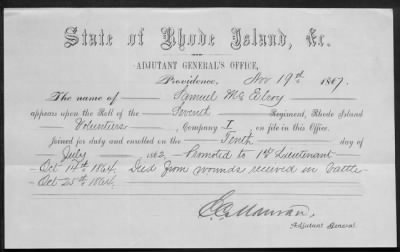 State of Rhode Island, &c.
ADJUTANT GENERAL'S OFFICE,
Providence, Nov 19th 1867.
The name of Samuel McElroy
appears upon the Roll of the Seventh Regiment, Rhode Island
Volunteers, Company I, on file in this Office.
Joined for duty and enrolled on the Tenth day of
July 1862. Promoted to 1st Lieutenant
Oct 14th 1864. Died from wounds received in battle
Oct 25th 1864.
Adjutant General.